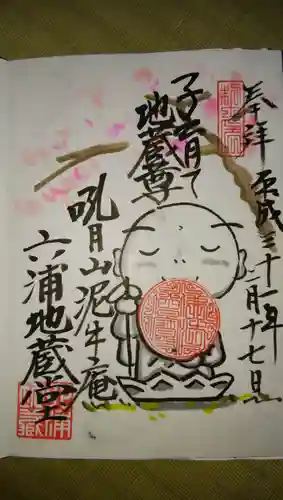 奉拝
平成三十一年二月十七日
子育て
地蔵尊
吼月山泥牛庵
六浦地蔵堂